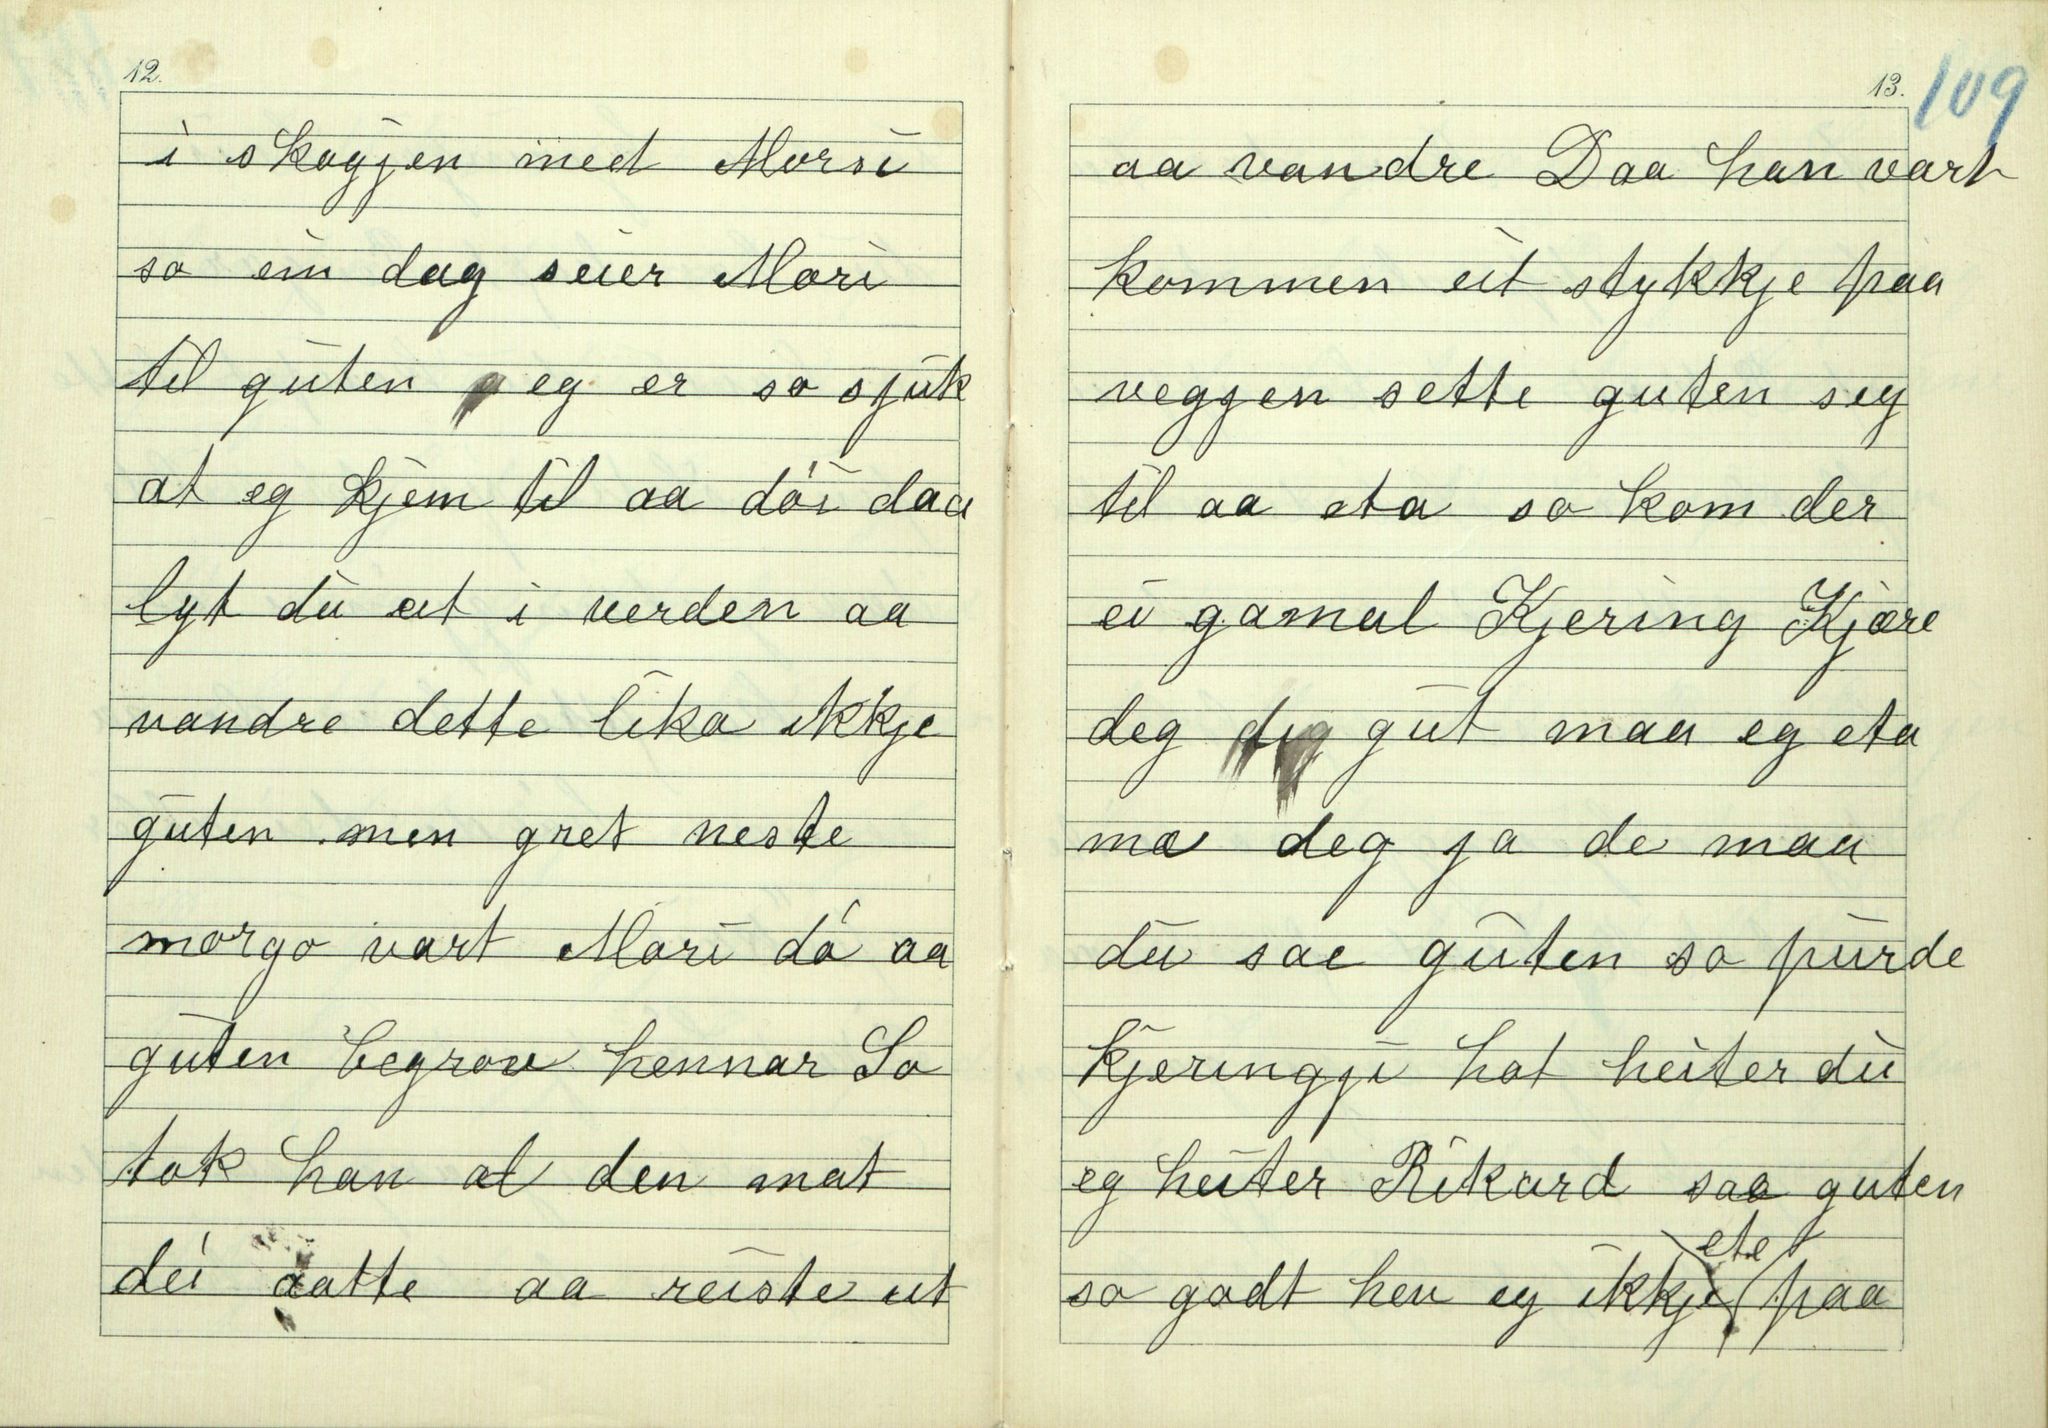 12.
i skogjen med Morsi
so ein dag seier Mori
til guten eg er so sjuk
at eg kjem til aa dói daa
lyt du ut i verden aa
vandre dette lika ikkje
guten men gret neste
morgo vart Mori dó aa
guten begrov hennar So
tok han al den mat
dei aatte aa reiste ut
13.
109
aa vandre Daa han vart
kommen eit stykkje paa
veggjen sette guten seg
til aa eta so kom der
ei gamal Kjering Kjære
deg dig gut maa eg eta
mæ deg ja de maa
du sae guten so purde
kjeringji hot heiter du
eg heiter Rikard saa guten
so godt hev eg ikkje ete paa